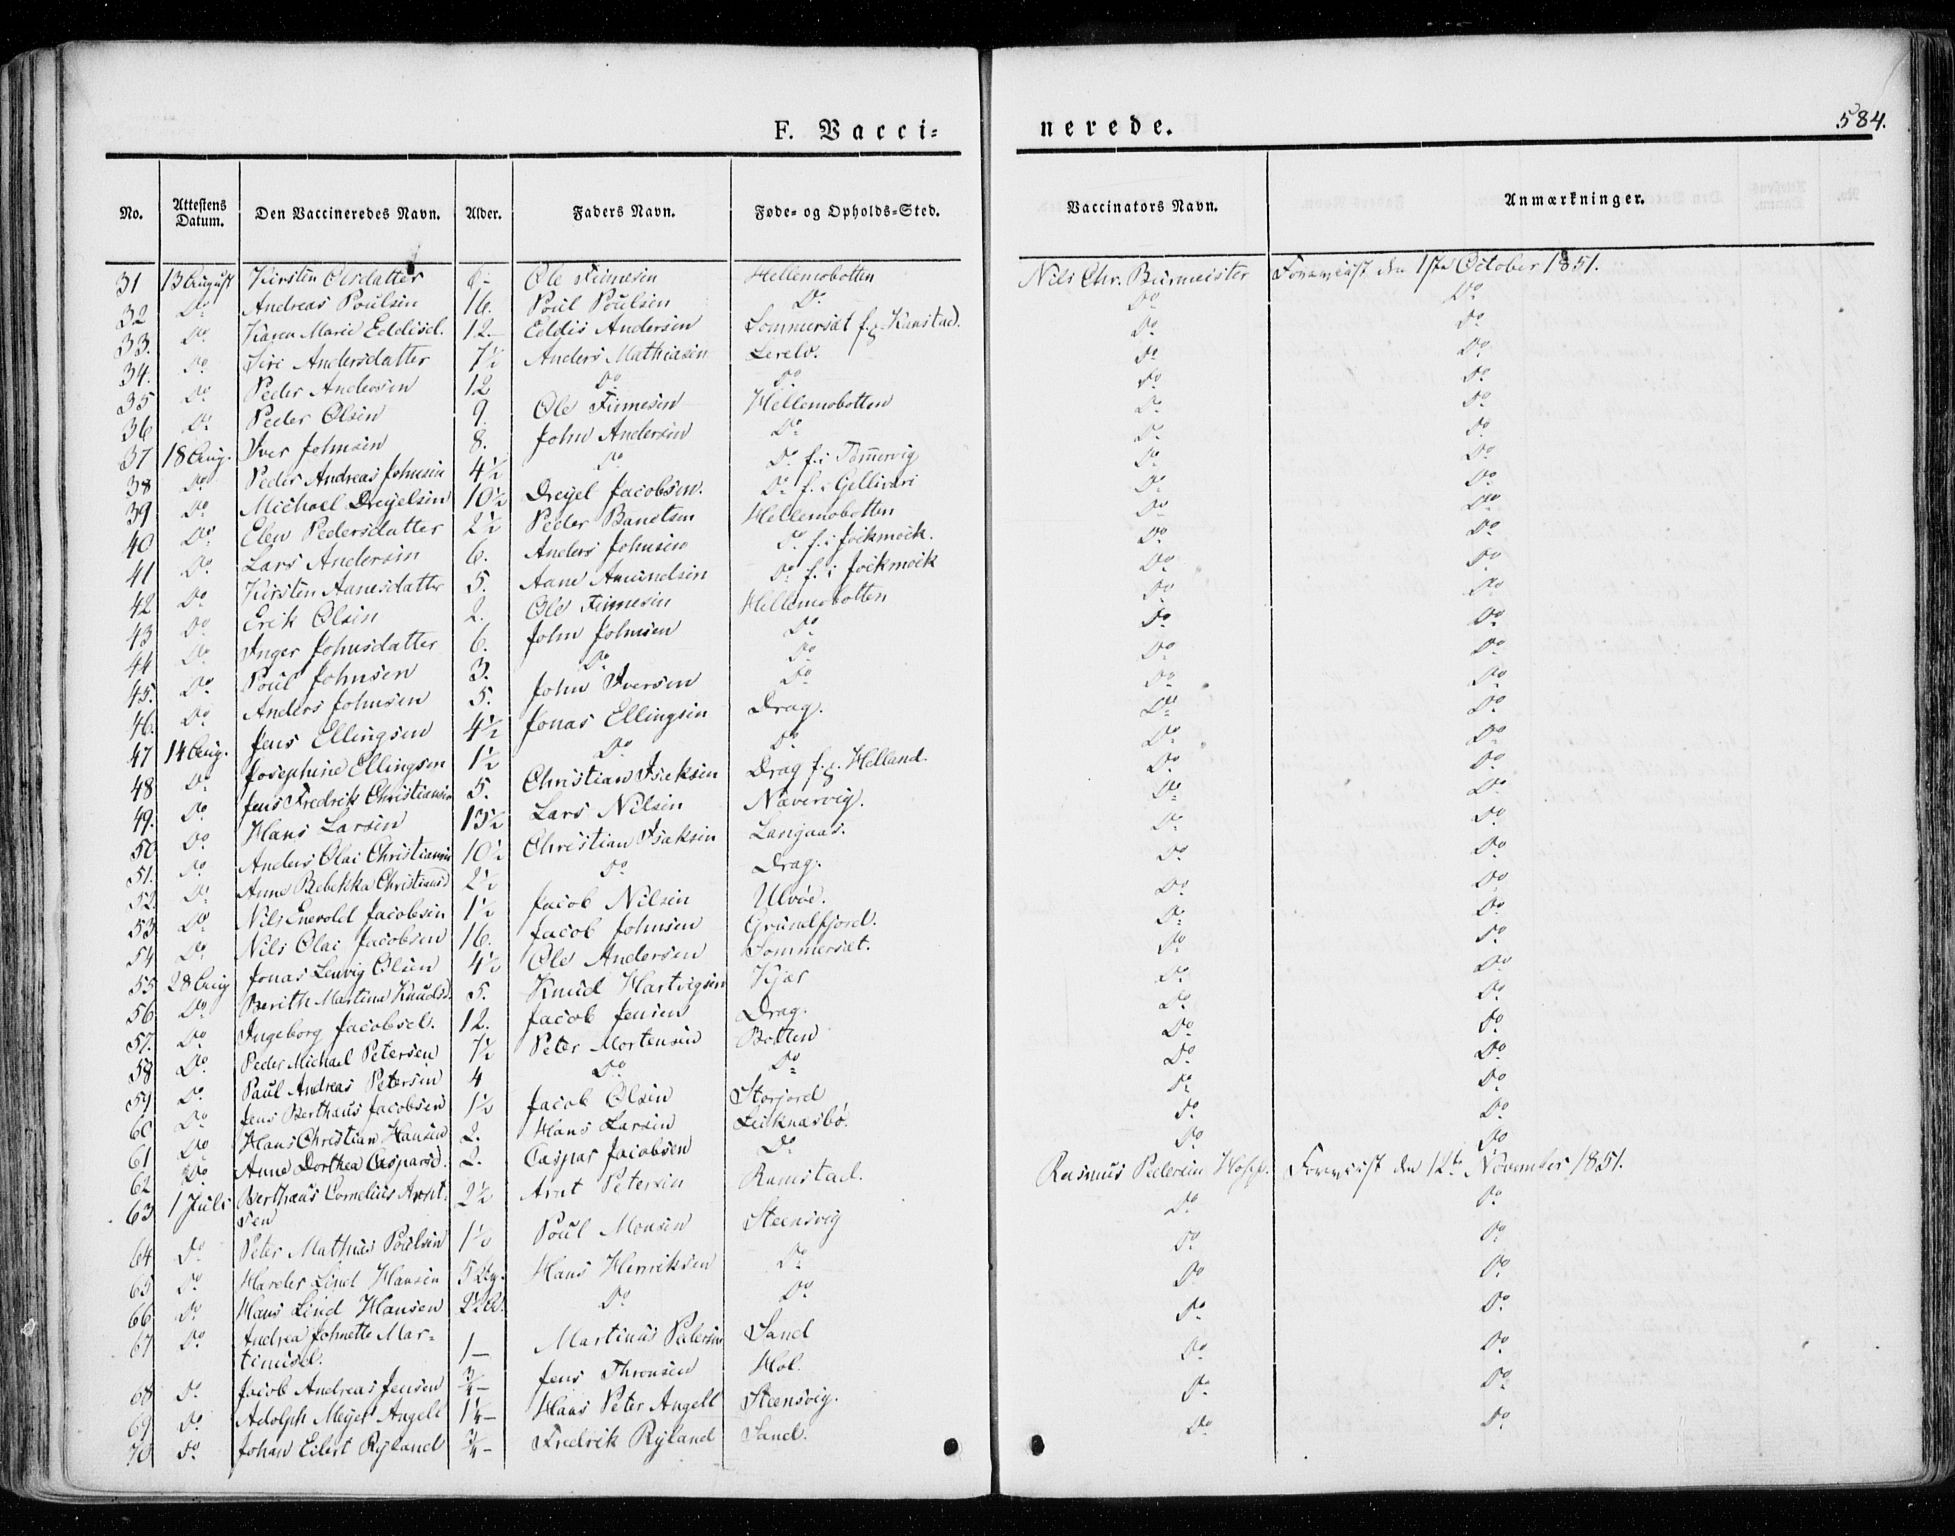 F. Vacci=
nerede.
584.
No. Attestens Datum. Den Vaccineredes Navn. Alder. Faders Navn. Føde- og Opholds-Sted. Vaccinators Navn. Anmærkninger.
31 13 August Kirsten Olsdatter 6- Ole Finnesen Hellemobotten Nils Chr. Burmeister Foreviist den 1ste October 1851.
32 Do Andreas Poulsen 16. Poul Poulsen Do Do Do
33. Do Karen Marie Eddisd. 12- Eddis Andersen Sommersæt f. Kanstad. Do Do
34. Do Siri Andersdatter 7½ Anders Mathiesen Do Do
35 Do Peder Andersen 12 Do Do Do Do
36 Do Peder Olsen 9 Ole Finnesen Hellemobotten Do Do
37 18 Aug. Iver Johnsen 8. John Andersen Do Do Do
38 Do Peder Andreas Johnsen 4½ Do Do f. i Tømervig Do Do
39 Do Michael Dreyelsen 10½ Dreyel Jacobsen. Do f. i Gellivari Do Do
40 Do Elen Pedersdatter 2½ Peder Bandtsen Hellemobotten Do Do
41 Do Lars Andersen 6. Anders Johnsen Do f. i Jockmock. Do Do
42 Do Kirsten Aanesdatter 5. Aane Amundsen Do f. i Jockmock Do Do
43 Do Erik Olsen 2. Ole Finnesen Hellemobotten Do Do
44 Do Inger Johnsdatter 6. John Johnsen Do Do Do
45. Do Poul Johnsen 3. Do Do Do Do
46. Do Anders Johnsen 5. John Iversen Do Do Do
47 14 Aug. Jens Ellingsen 4½ Jonas Ellingsen Drag. Do Do
48 Do Josephine Ellingsen 1½ Do Do Do Do
49. Do Jens Fredrik Christiansen 5. Christian Isaksen Drag f. Helland. Do Do
50 Do Hans Larsen 13½ Lars Nilsen Nævervig. Do Do
51. Do Anders Olai Christiansen 10½ Christian Isaksen Langnæs. Do Do
52 Do Anne Rebekka Christiansd 2½ Do Drag. Do Do
53 Do Nils Enevold Jacobsen 1½ Jacob Nilsen Ulvøe. Do Do
54 Do Nils Olai Jacobsen 16. Jacob Johnsen Grundfjord. Do Do
55 28 Aug Jonas Ludvig Olsen 4½ Ole Andersen Sommersæt. Do Do
56 Do Berith Martina Knudsd. 5. Knud Hartvigsen Kjær Do Do
57. Do Ingeborg Jacobsd. 12. Jacob Jensen Drag. Do Do
58 Do Peder Michael Petersen 7½ Peter Mortensen Botten Do Do
59 Do Paul Andreas Petersen 4 Do Do Do Do
60 Do Jens Berthæus Jacobsen 1½ Jacob Olsen Storjord Do Do
61 Do Hans Christian Hansen 2. Hans Larsen Leiknæsbø. Do Do
62 Do Anne Dorthea Caspersd. 2. Caspar Jacobsen Do Do Do
63 1 Juli Berthæus Cornelius Arnt-
sen 2½ Arnt Petersen Ramstad. Rasmus Pedersen Foreviist den 12te November 1851.
64 Do Peter Mathias Poulsen 1½ Poul Monsen Steensvig Do Do
65 Do Harder Lind Hansen 5 Hans Henriksen Do Do Do
66 Do Hans Lind Hansen 2½ Do Do Do Do
67 Do Andrea Johnette Mar=
tinusd. 1- Martinus Pedersen Sand Do Do
68 Do Jacob Andreas Jensen ¾- Jens Thronsen Hol. Do Do
69 Do Adolph Meyer Angell 1¼- Hans Peter Angell Steensvig. Do Do
70 Do Johan Eilert Ryland ¾- Fredrik Ryland Sand. Do Do